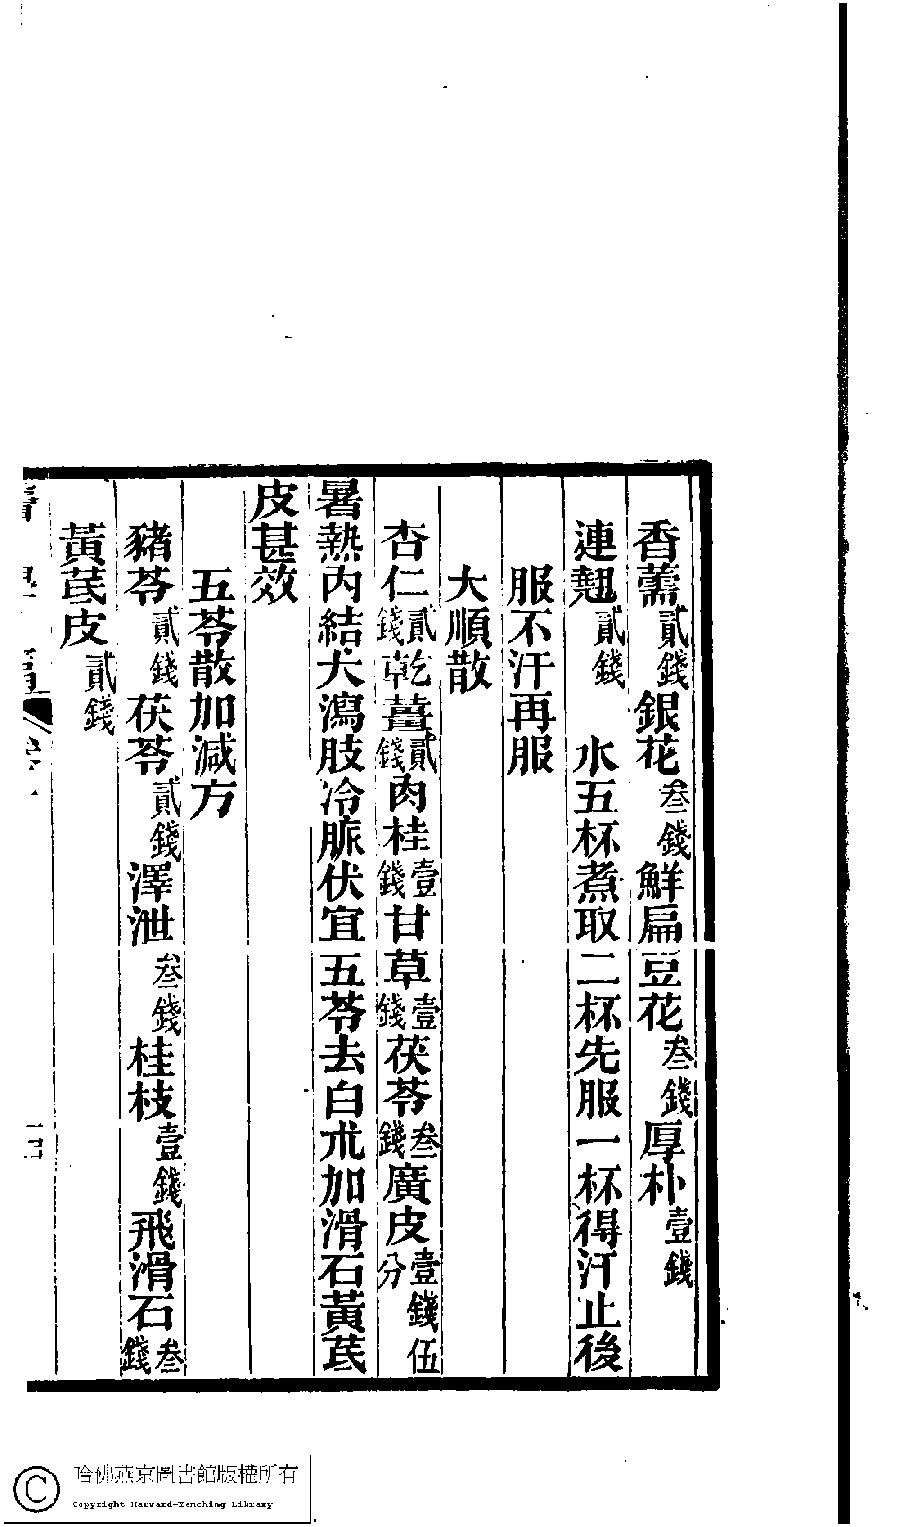 香薷貳錢銀花叁錢鮮扁豆花叁錢厚朴壹錢
連翹貳錢 水五杯煮取二杯先服一杯得汗止後
服不汗再服
大順散
杏仁貳錢乾薑貳錢肉桂壹錢甘草壹錢茯苓叁錢廣皮壹錢伍分
暑熱內結大瀉肢冷脈伏宜五苓去白朮加滑石黃芪
皮甚效
五苓散加減方
豬苓貳錢茯苓貳錢澤泄叁錢桂枝壹錢飛滑石叁錢
黃芪皮貳錢
哈佛燕京圖書館版權所有
Copyright Harvard-Yenching Library